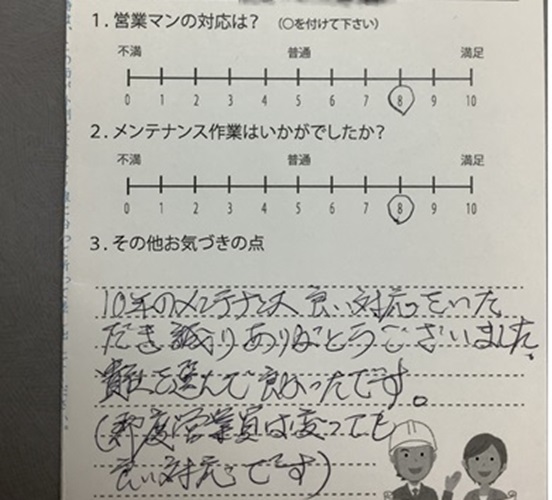 1. 営業マンの対応は? (○を付けて下さい)
不満 普通 満足
0 1 2 3 4 5 6 7 8 9 10
2. メンテナンス作業はいかがでしたか?
不満 普通 満足
0 1 2 3 4 5 6 7 8 9 10
3. その他お気づきの点
10年のメンテナンス 良い対応をいた
だき 誠にありがとうございました。
貴社を選んで良かったです。
(都度営業員は変っても
良い対応です)